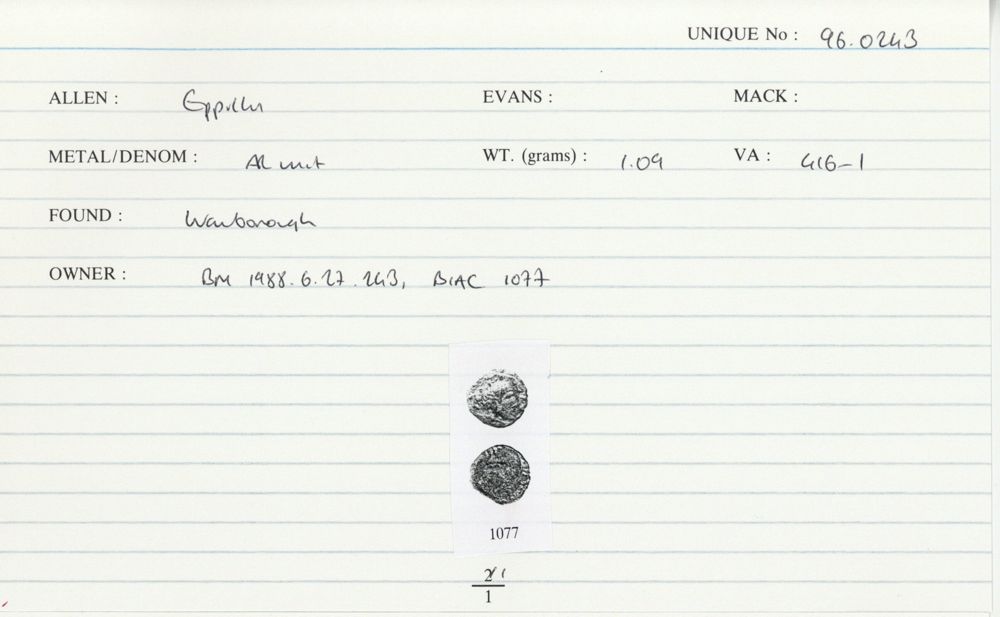 UNIQUE No : 96.0243
ALLEN : Eppillus EVANS : MACK :
METAL/DENOM : AR unit WT. (grams) : 1.09 VA : 416-1
FOUND : Wanborough
OWNER : BM 1988.6.27.243, BIAC 1077
1077
1
1